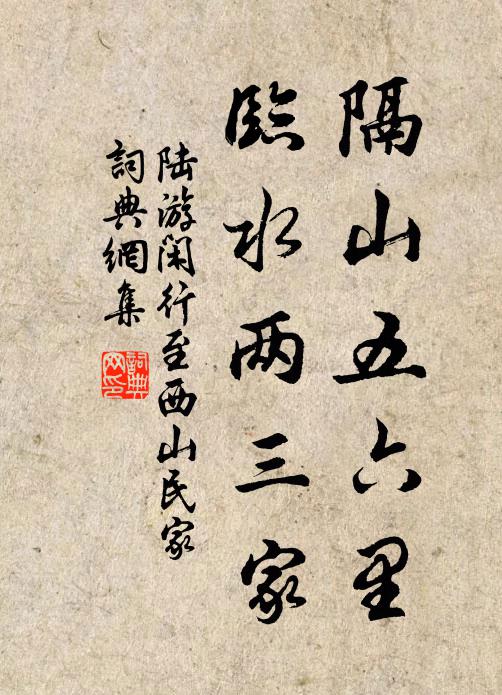 隔山五六里
臨水两三家
陆游闲行至西山民家
詞典網集
詞典网印